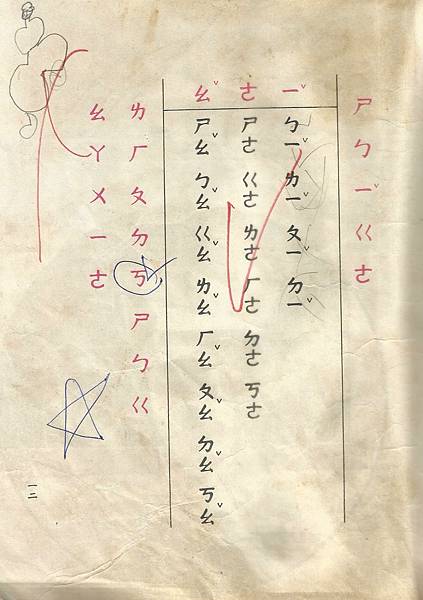 ㄕ ㄅ ㄧˇ ㄍ ㄜ
ㄧˇ ㄅㄧˇ ㄌㄧˇ ㄆㄧˇ ㄉㄧˇ
ㄜ ㄕㄜ ㄍㄜ ㄌㄜ ㄏㄜ ㄉㄜ ㄎㄜ
ㄠˇ ㄕㄠˇ ㄅㄠˇ ㄍㄠˇ ㄌㄠˇ ㄏㄠˇ ㄆㄠˇ ㄉㄠˇ ㄎㄠˇ
ㄌ ㄏ ㄆ ㄉ ㄎ ㄕ ㄅ ㄍ
ㄠ ㄚ ㄨ ㄧ ㄜ
一二